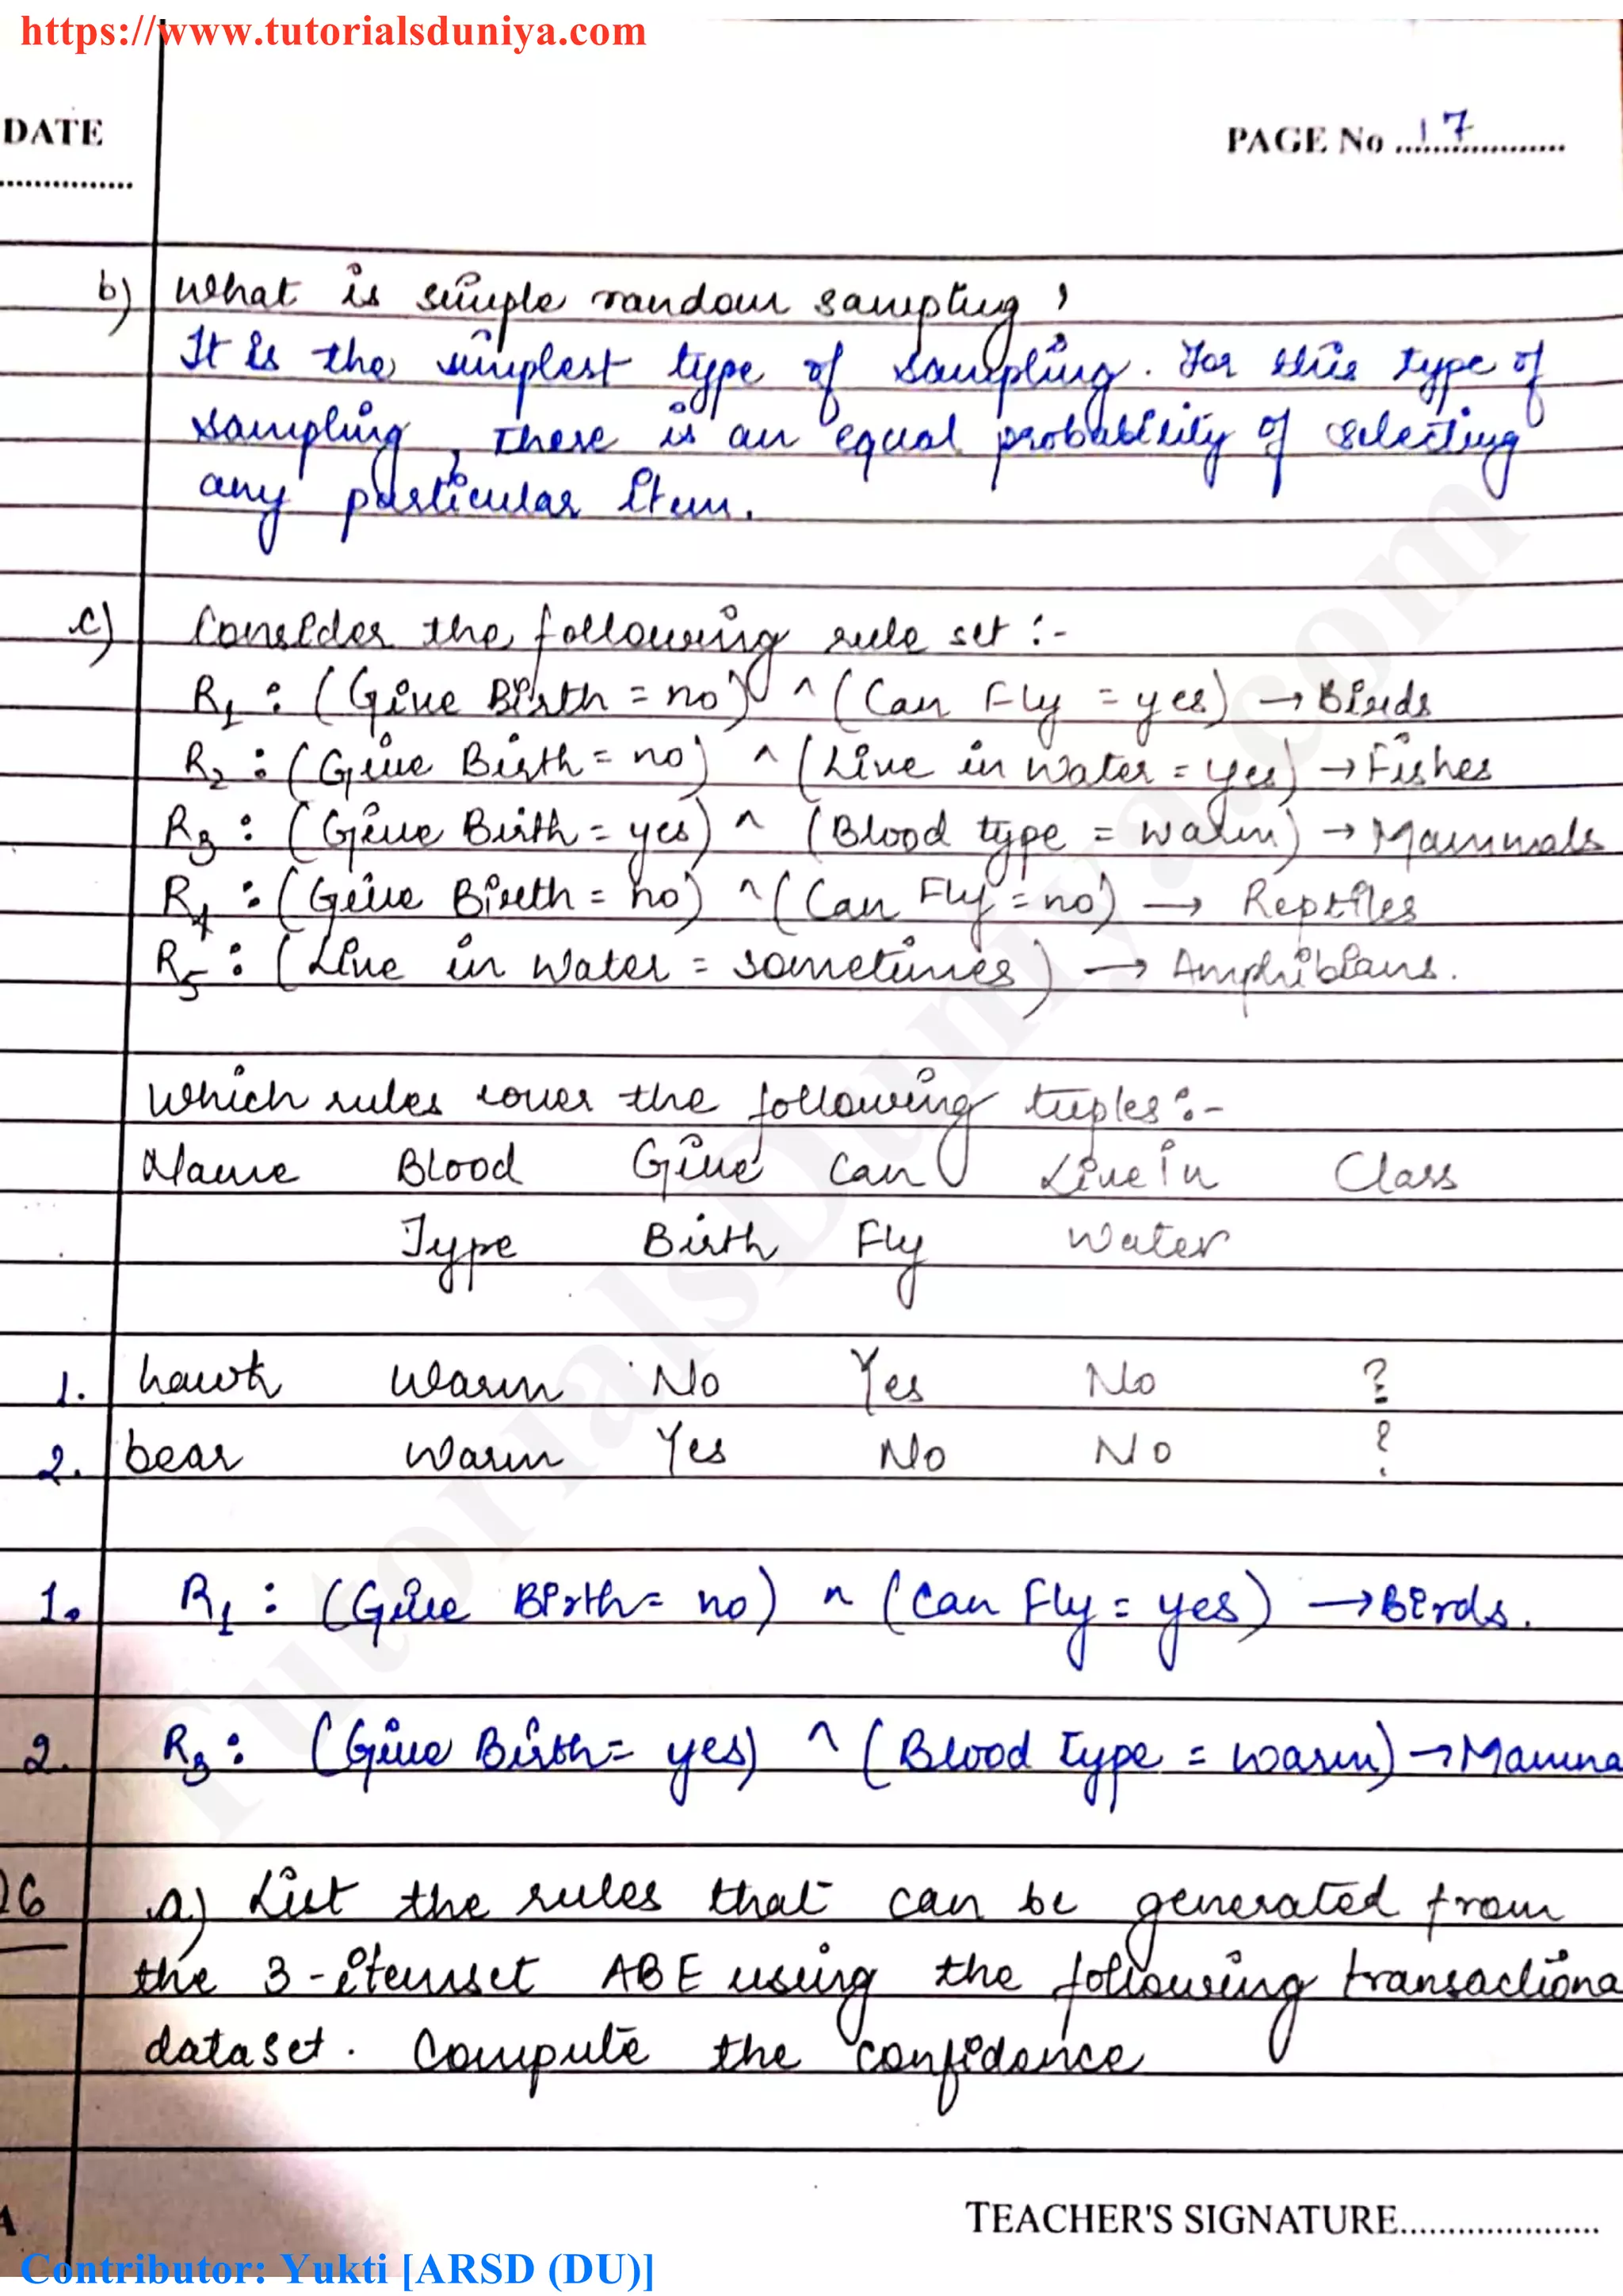 https://www.tutorialsduniya.com
DATE
PAGE No 17
b) What is simple random sampling?
It is the simplest type of sampling. For this type of
sampling, there is an equal probability of selecting
any particular item.
c) Consider the following rule set :-
R1 : (Give Birth = no) ^ (Can Fly = yes) → Birds
R2 : (Give Birth = no) ^ (Live in Water = yes) → Fishes
R3 : (Give Birth = yes) ^ (Blood type = warm) → Mammals
R4 : (Give Birth = no) ^ (Can Fly = no) → Reptiles
R5 : (Live in Water = sometimes) → Amphibians.
Which rules cover the following tuples :-
Name Blood Give Can Live in Class
Type Birth Fly Water
1. hawk Warm No Yes No ?
2. bear Warm Yes No No ?
1. R1 : (Give Birth = no) ^ (Can Fly = yes) → Birds.
2. R3 : (Give Birth = yes) ^ (Blood Type = warm) → Mamma
Q6 a) List the rules that can be generated from
the 3-itemset ABE using the following transactiona
dataset. Compute the confidence
TEACHER'S SIGNATURE
Contributor: Yukti [ARSD (DU)]
TutorialsDuniya.com